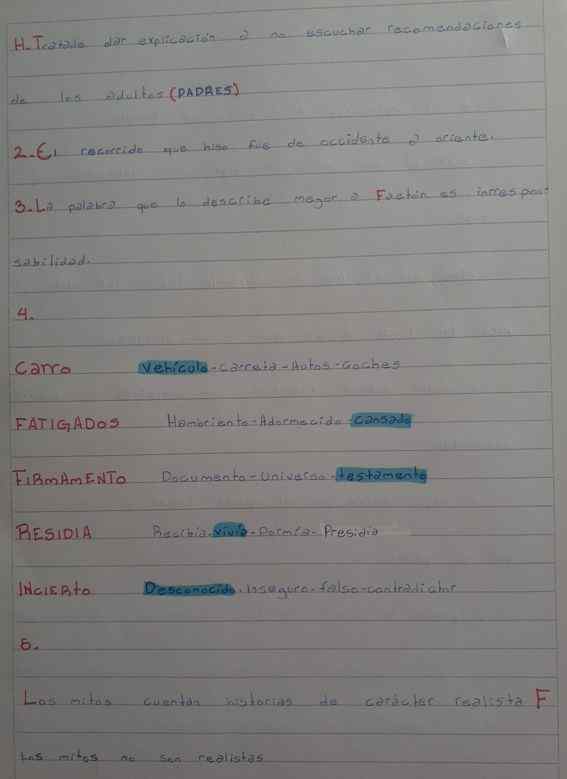 H. Tratado dar explicación a no escuchar recomendaciones
de los adultos (PADRES)
2.-El recorrido que hiso fue de occidente a oriente.
3.-La palabra que lo describe megor a Faetón es inrrespon-
sabilidad.
4.
Carro Vehículo-Carreta-Autos-Coches
FATIGADOS Hambriento-Adormecido-Cansado
FIRMAMENTO Documento-Universo-testamento
RESIDIA Recibia-vivía-Dormía-Presidia
INCIERto Desconocido-Inseguro-falso-contradictor
5.
Los mitos cuentan historias de carácter realista F
Los mitos no son realistas